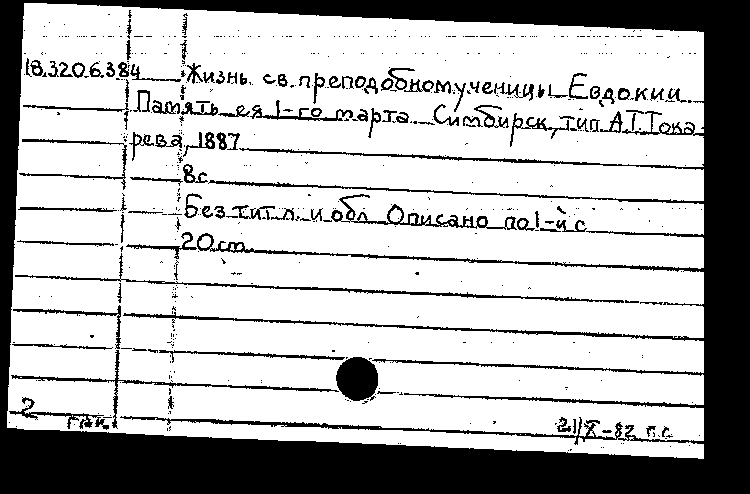 18.320.6.384 Жизнь св. преподобномученицы Евдокии
Память ея 1-го марта Симбирск, тип А.Т.Тока-
рева, 1887
8с.
Без тит л. и обл Описано по 1-й с
20см.
2 21/X-82 г.